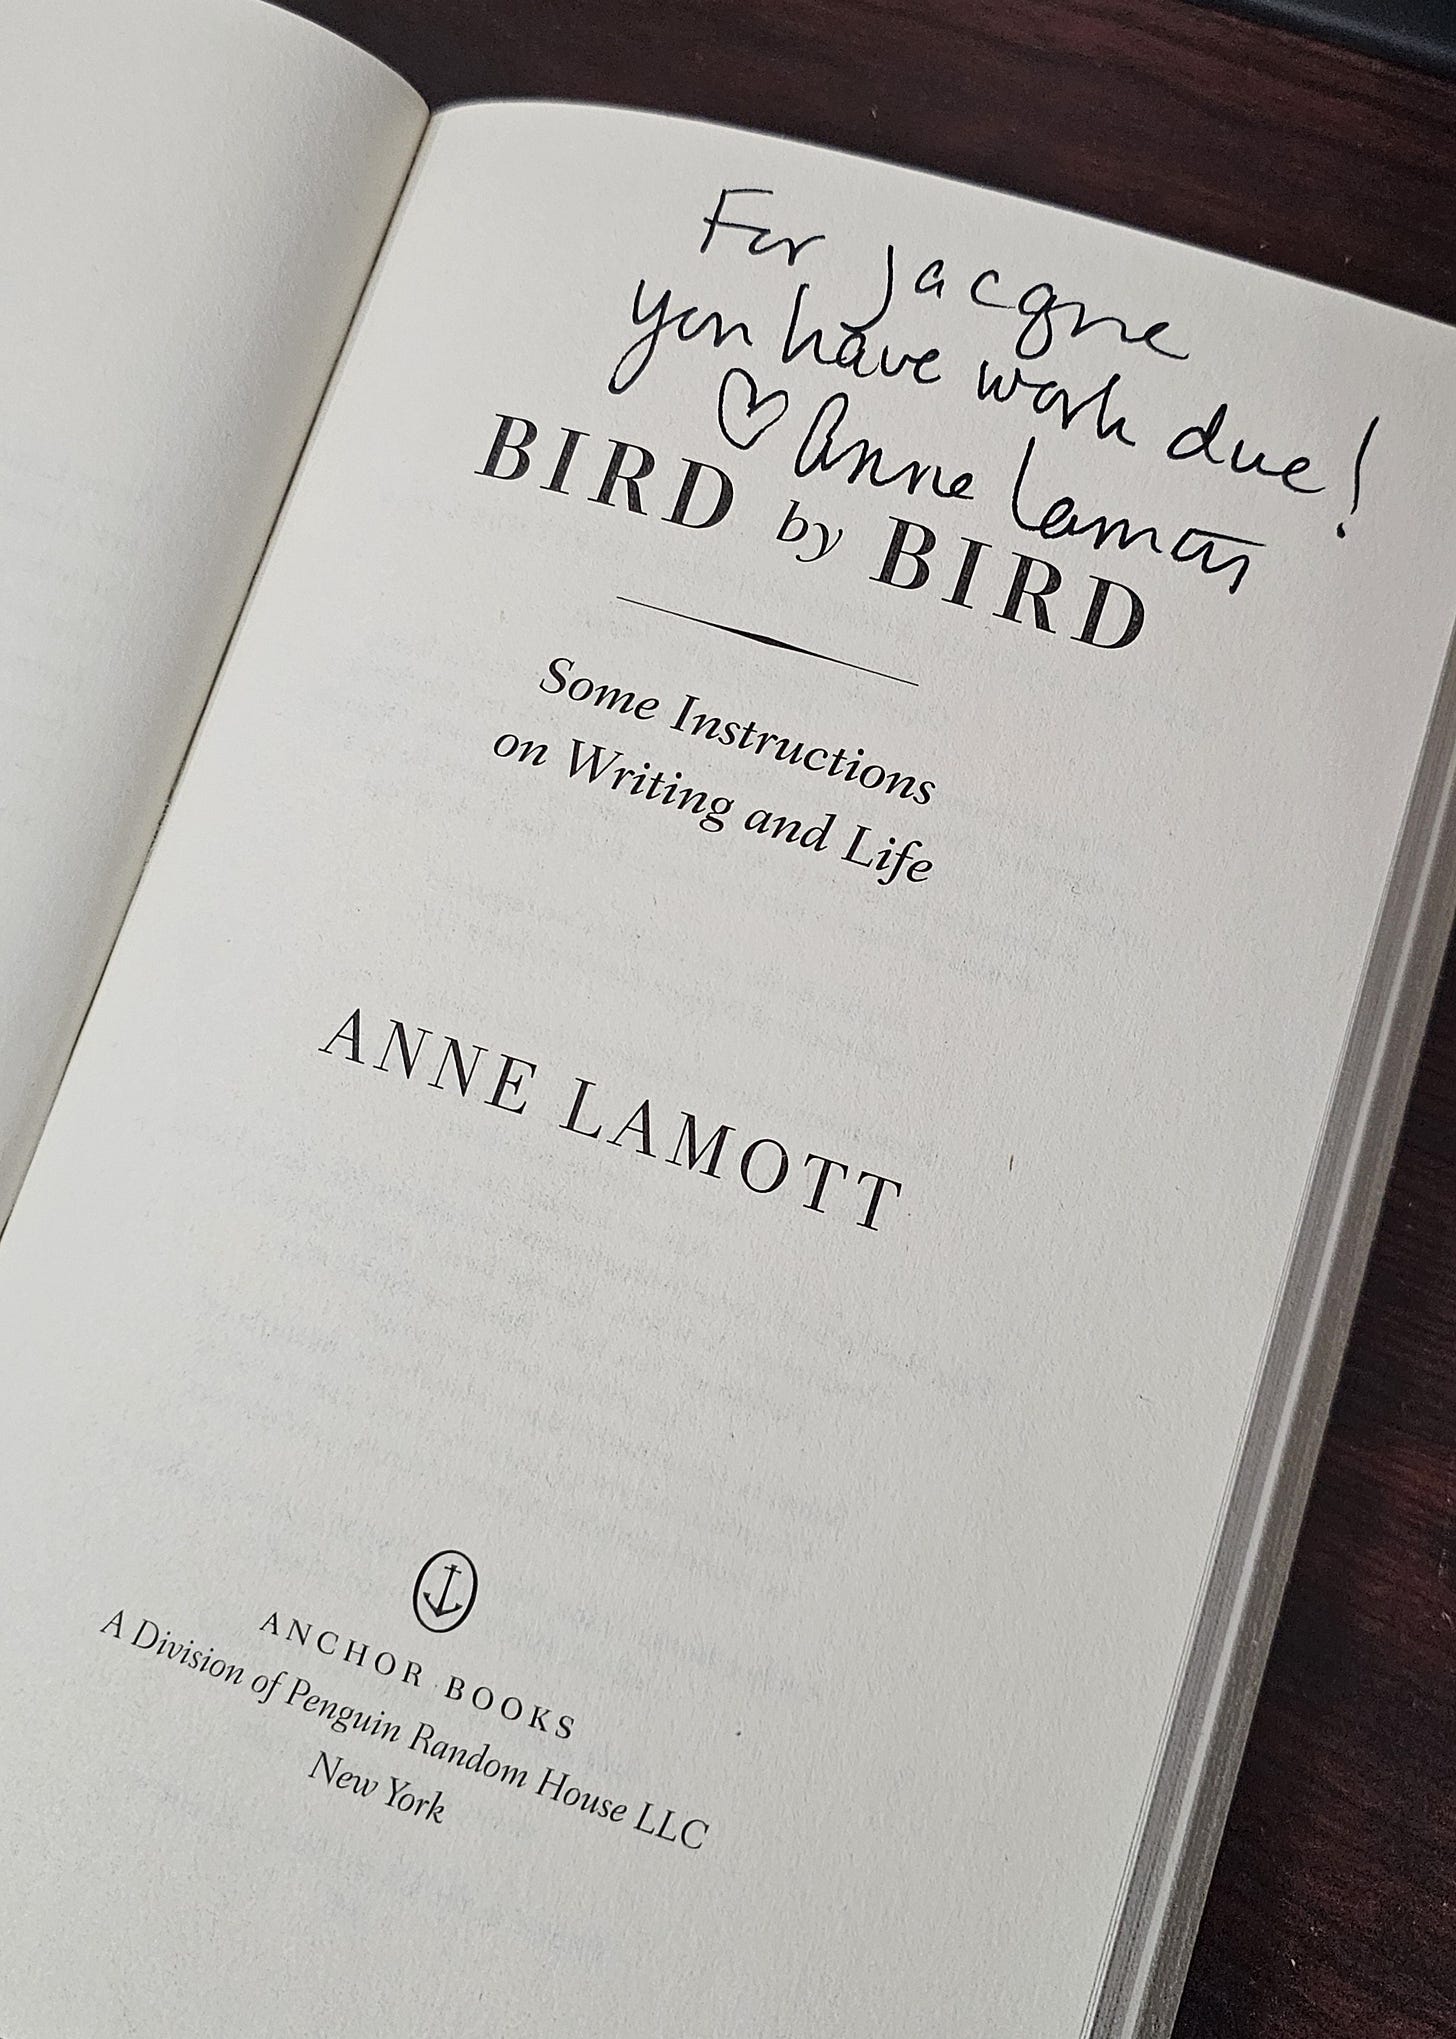 For Jacque
you have work due!
♡ Anne Lamott
BIRD by BIRD
Some Instructions
on Writing and Life
ANNE LAMOTT
ANCHOR BOOKS
A Division of Penguin Random House LLC
New York